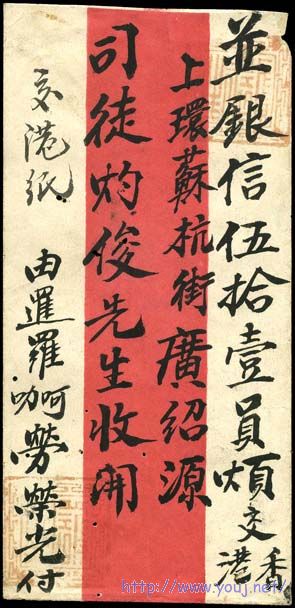 並銀信伍拾壹員煩交香港
上環蘇杭街廣紹源
司徒灼俊先生收開
交港紙
由暹羅咖啊勞榮光付
www.youj.net/